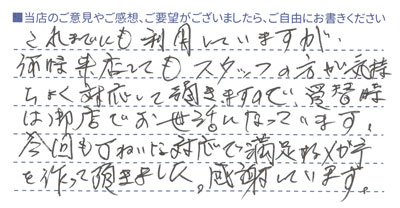 ■当店のご意見やご感想、ご要望がございましたら、ご自由にお書きください
これまでにも利用していますが、
何時来店しても スタッフの方が気持
ちよく対応して頂きますので、買替時
は御店でお世話になっています。
今回も丁ねいな対応で満足なメガネ
を作って頂きました。感謝しています。